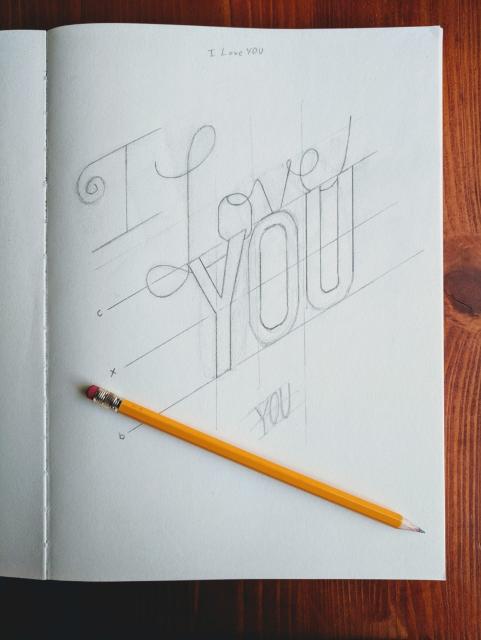 I Love YOU
I Love
YOU
c
x
b
YOU